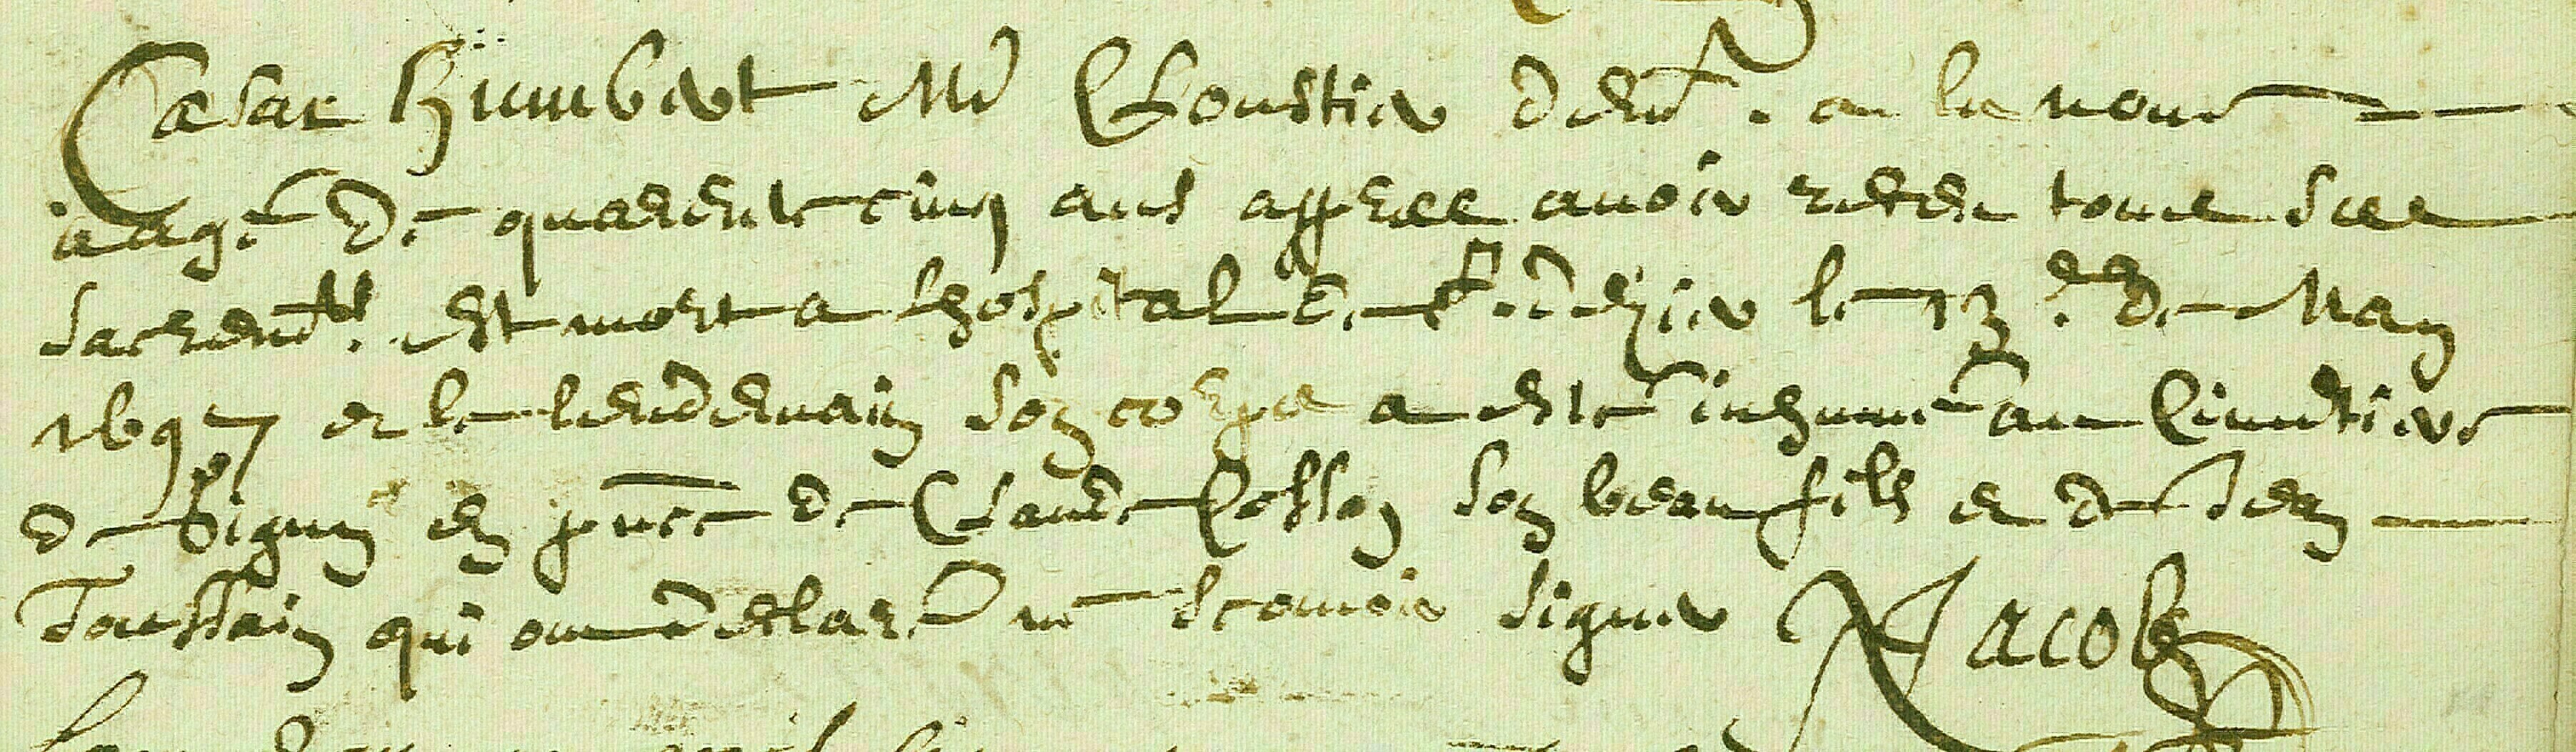 Cesar Humbert Md Cloustier demt. a la noue
aagé de quarente cinq ans appres avoir receu tous ses
sacremts. est mort a lhospital de st. didier le 13.e de May
1697 et le lendemain son corps a esté inhumé au Cimetiere
de Bigny en pnce de Claude Cosson son beau fils et de Jean
Toussain qui ont declaré ne scavoir signer Jacob